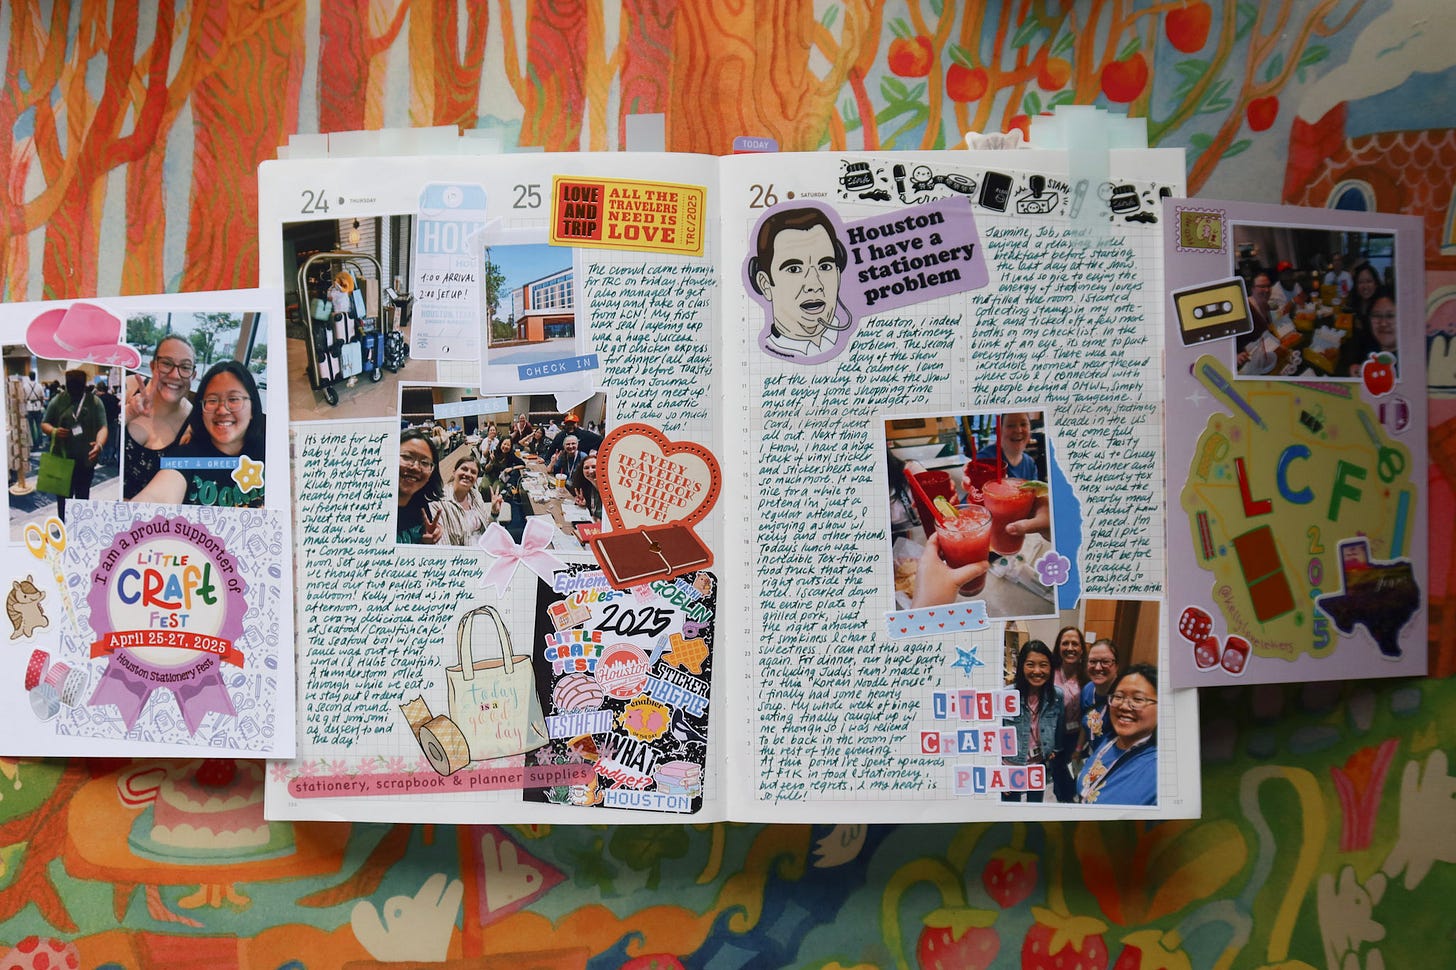 MEET & GREET
I am a proud supporter of
LiTTLE
CRAFT
FEST
April 25-27, 2025
Houston Stationery Fest
24
THURSDAY
HOU
1:00 ARRIVAL
2:00 SET UP!
HOUSTON, TEXAS
CHECK IN
25
LOVE
AND
TRIP
ALL THE
TRAVELERS
NEED IS
LOVE
TRC/2025
The crowd came through
for TRC on Friday. However,
I also managed to get
away and take a class
from LCN! My first
wax seal layering
was a huge success.
We got chicken express
for dinner (all dark
meat) before Toasty
Houston Journal
Society meet up!
It was a lot
but also so much
fun!
EVERY
TRAVELER'S
NOTEBOOK
IS FILLED
WITH
LOVE!
It's time for LCF
baby! We had
an early start
with breakfast
klub, nothing like
hearty fried chicken
w/ french toast &
sweet tea to start
the day. We
made our way N
to Conroe around
noon. Set up was less scary than
we thought because they already
moved our two pallets into the
ballroom! Kelly joined us in the
afternoon, and we enjoyed
a crazy delicious dinner
at Seafood/Crawfish Cafe.
The seafood boil w/ cajun
sauce was out of this
world (& HUGE crawfish).
A thunderstorm rolled
through while we eat so
we stay put & ordered
a second round.
We got som som
as dessert to end
the day!
today
is a
good
day
stationery, scrapbook & planner supplies
Ephemera
Vibes
GOBLIN
2025
LITTLE
CRAFT
FEST
Houston
STICKER
MAGPIE
enabler
AESTHETIC
WHAT
budget?
HOUSTON
TODAY
26
SATURDAY
ink
STAMP
Houston
I have a
stationery
problem
Houston, I indeed
have a stationery
problem. The second
day of the show
feels calmer. I even
get the luxury to walk the show
and enjoy some shopping time
myself. I have no budget, so,
armed with a credit
card, I kind of went
all out. Next thing
I know, I have a huge
stack of vinyl stickers
and sticker sheets and
so much more. It was
nice for a while to
pretend I'm just a
regular attendee,
enjoying a show w/
Kelly and other friends.
Today's lunch was
incredible Tex-Filipino
food truck that was
right outside the
hotel. I scarfed down
the entire plate of
grilled pork, just
the right amount
of smokiness & char &
sweetness. I can eat this again &
again. For dinner, our huge party
(including Judy's team) made it
to this "Korean Noodle House".
I finally had some hearty
soup. My whole week of binge
eating finally caught up w/
me though so I was relieved
to be back in the room for
the rest of the evening.
At this point I've spent upwards
of $1K in food & stationery,
but zero regrets, & my heart is
so full!
Jasmine, Job, and I
enjoyed a relaxing hotel
breakfast before starting
the last day at the show.
I tried to enjoy the
energy of stationery lovers
that filled the room. I started
collecting stamps in my note
book and ticked off a few more
booths on my checklist. In the
blink of an eye, it's time to pack
everything up. There was an
incredible moment near the end
where LCN & I connected with
the people behind OMWL, Simply
Gilded, and Amy Tangerine. I
feel like my stationery
decades has
come full
circle. Toasty
took us to Chuey
for dinner and
the hearty tex
mex was the
hearty meal
I didn't know
I need. I'm
glad I pre-
packed the
night before
because I
crashed so
early in the night.
LiTTLE
CRAFT
PLACE
LCF
2025
Texas